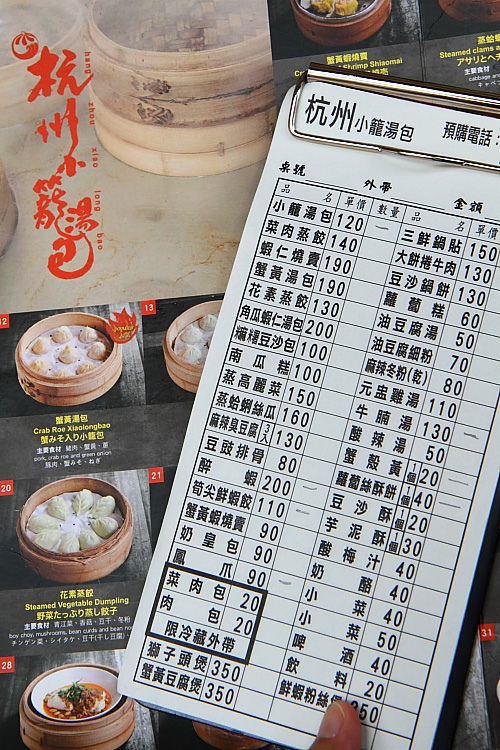 杭州小籠湯包
hang zhou xiao long bao
蟹黃蝦燒賣
Shrimp Shiaomai
主要食材
蒸蛤蜊
Steamed clams a
アサリとヘチ
主要食材
cabbage and
キャベ
12
13
Popular Item
蟹黃湯包
Crab Roe Xiaolongbao
蟹みそ入り小籠包
主要食材 豬肉、蟹黃、蔥
pork, crab roe and green onion
豚肉、蟹みそ、ねぎ
20
21
花素蒸餃
Steamed Vegetable Dumpling
野菜たっぷり蒸し餃子
主要食材 青江菜、香菇、豆干、冬粉
boy choy, mushrooms, bean curds and bean noo
チンゲン菜、シイタケ、豆干(干し豆腐)
28
31
杭州小籠湯包 預購電話:
桌號 外帶 金額
品名 單價 數量 品名 單價
小籠湯包 120 一
菜肉蒸餃 140
蝦仁燒賣 190
蟹黃湯包 190
花素蒸餃 130
角瓜蝦仁湯包 200
糯糬豆沙包 100
南瓜糕 100
蒸高麗菜 150
蒸蛤蜊絲瓜 160
麻辣臭豆腐 3入 130
豆豉排骨 80
醉蝦 200
筍尖鮮蝦餃 110
蟹黃蝦燒賣 90
奶皇包 90
鳳爪 90
菜肉包 20
肉包 20
限冷藏外帶
獅子頭煲 350
蟹黃豆腐煲 350
三鮮鍋貼 150
大餅捲牛肉 130
豆沙鍋餅 130
蘿蔔糕 60
油豆腐湯 50
油豆腐細粉 70
麻辣冬粉(乾) 80
元盅雞湯 110
牛腩湯 130
酸辣湯 50
蟹殼黃 1個 20
蘿蔔絲酥餅 1個 40
豆沙酥 1個 20
芋泥酥 1個 30
酸梅汁 40
奶酪 40
小菜 40
小菜 50
啤酒 40
飲料 20
鮮蝦粉絲煲 350